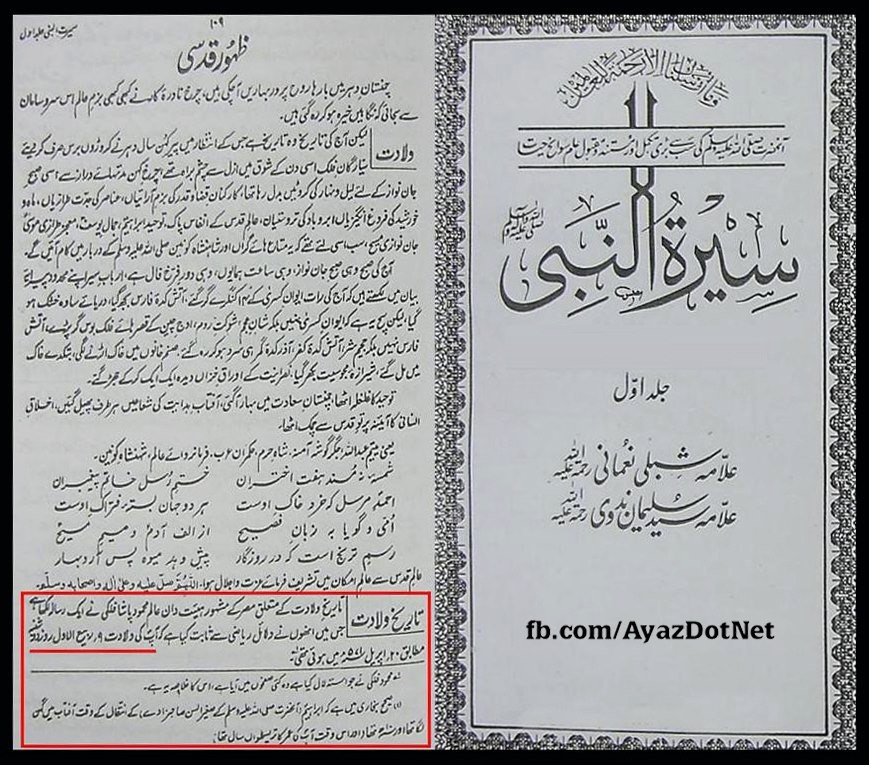 وما ارسلناک الا رحمۃ للعالمین
آنحضرت صلی اللہ علیہ وسلم کی سب سے بڑی مکمل اور مستند و مقبول عام سوانح حیات
سیرۃ النبی
صلی اللہ علیہ وآلہ وسلم
جلد اوّل
علامہ شبلی نعمانی رحمۃ اللہ علیہ
علامہ سید سلیمان ندوی رحمۃ اللہ علیہ
fb.com/AyazDotNet
سیرت النبیؐ جلد اول
۱۰۹
ظہورِ قدسی
چمنستانِ دہر میں بارہا روح پرور بہاریں آچکی ہیں، چرخِ نادرہ کار نے کبھی کبھی بزمِ عالم اس سر و سامان
سے سجائی کہ نگاہیں خیرہ ہو کر رہ گئی ہیں۔
ولادت
لیکن آج کی تاریخ وہ تاریخ ہے جس کے انتظار میں پیرِ کہن سال دہر نے کروڑوں برس صرف کر دیئے
سیارگانِ فلک اسی دن کے شوق میں ازل سے چشم براہ تھے، چرخِ کہن مدتہائے دراز سے اسی صبح
جان نواز کے لئے لیل و نہار کی کروٹیں بدل رہا تھا، کارکنانِ قضا و قدر کی بزم آرائیاں، عناصر کی جدت طرازیاں، ماہ و
خورشید کی فروغ انگیزیاں، ابر و باد کی تردستیاں، عالمِ قدس کے انفاسِ پاک، توحیدِ ابراہیمؑ، جمالِ یوسفؑ، معجز طرازیِ موسیٰؑ
جان نوازیِ مسیحؑ، سب اسی لئے تھے کہ یہ متاع ہائے گراں ارز شاہنشاہِ کونین صلی اللہ علیہ وسلم کے دربار میں کام آئیں گے۔
آج کی صبح وہی صبحِ جان نواز، وہی ساعتِ ہمایوں، وہی دورِ فرخ فال ہے، اربابِ سیر اپنے محدود پیرایۂ
بیان میں لکھتے ہیں کہ آج کی رات ایوانِ کسریٰ کے ۱۴ کنگرے گر گئے، آتش کدۂ فارس بجھ گیا، دریائے ساوہ خشک ہو
گیا، لیکن سچ یہ ہے کہ ایوانِ کسریٰ نہیں بلکہ شانِ عجم، شوکتِ روم، اوجِ چین کے قصر ہائے فلک بوس گر پڑے، آتشِ
فارس نہیں بلکہ جحیمِ شر، آتش کدۂ کفر، آذر کدۂ گمرہی سرد ہو کر رہ گئے، صنم خانوں میں خاک اڑنے لگی، بتکدے خاک
میں مل گئے، شیرازۂ مجوسیت بکھر گیا، نصرانیت کے اوراقِ خزاں دیدہ ایک ایک کر کے جھڑ گئے۔
توحید کا غلغلہ اٹھا، چمنستانِ سعادت میں بہار آگئی، آفتابِ ہدایت کی شعاعیں ہر طرف پھیل گئیں، اخلاقِ
انسانی کا آئینہ پرتوِ قدس سے چمک اٹھا۔
یعنی یتیمِ عبداللہ، جگر گوشۂ آمنہ، شاہِ حرم، حکمرانِ عرب، فرمانروائے عالم، شہنشاہِ کونین۔
شمسۂ نہ مسندِ ہفت اختران ختمِ رسل خاتمِ پیغمبران
احمدِ مرسل کہ خرد خاکِ اوست ہر دو جہان بستۂ فتراکِ اوست
اُمّی و گویا بہ زبانِ فصیح از الفِ آدم و میمِ مسیح
رسمِ ترنج است کہ در روزگار پیش دہد میوہ پس آرد بہار
عالمِ قدس سے عالمِ امکان میں تشریف فرمائے عزت و اجلال ہوا، اللّٰھم صل علیہ وعلیٰ اٰلہ واصحابہ وسلم۔
تاریخِ ولادت
تاریخ ولادت کے متعلق مصر کے مشہور ہیئت دان عالم محمود پاشا فلکی نے ایک رسالہ لکھا ہے
جس میں انھوں نے دلائلِ ریاضی سے ثابت کیا ہے کہ آپؐ کی ولادت ۹ ربیع الاول روز دوشنبہ
مطابق ۲۰ اپریل ۵۷۱ء میں ہوئی تھی۔
محمود فلکی نے جو استدلال کیا ہے وہ کئی صفحوں میں آیا ہے، اس کا خلاصہ یہ ہے۔
(۱) صحیح بخاری میں ہے کہ ابراہیمؓ (آنحضرت صلی اللہ علیہ وسلم کے صغیر السن صاحبزادے) کے انتقال کے وقت آفتاب میں گہن
لگا تھا اور ۱۰ھ تھا، اور اس وقت آپؐ کی عمر کا تریسٹھواں سال تھا،